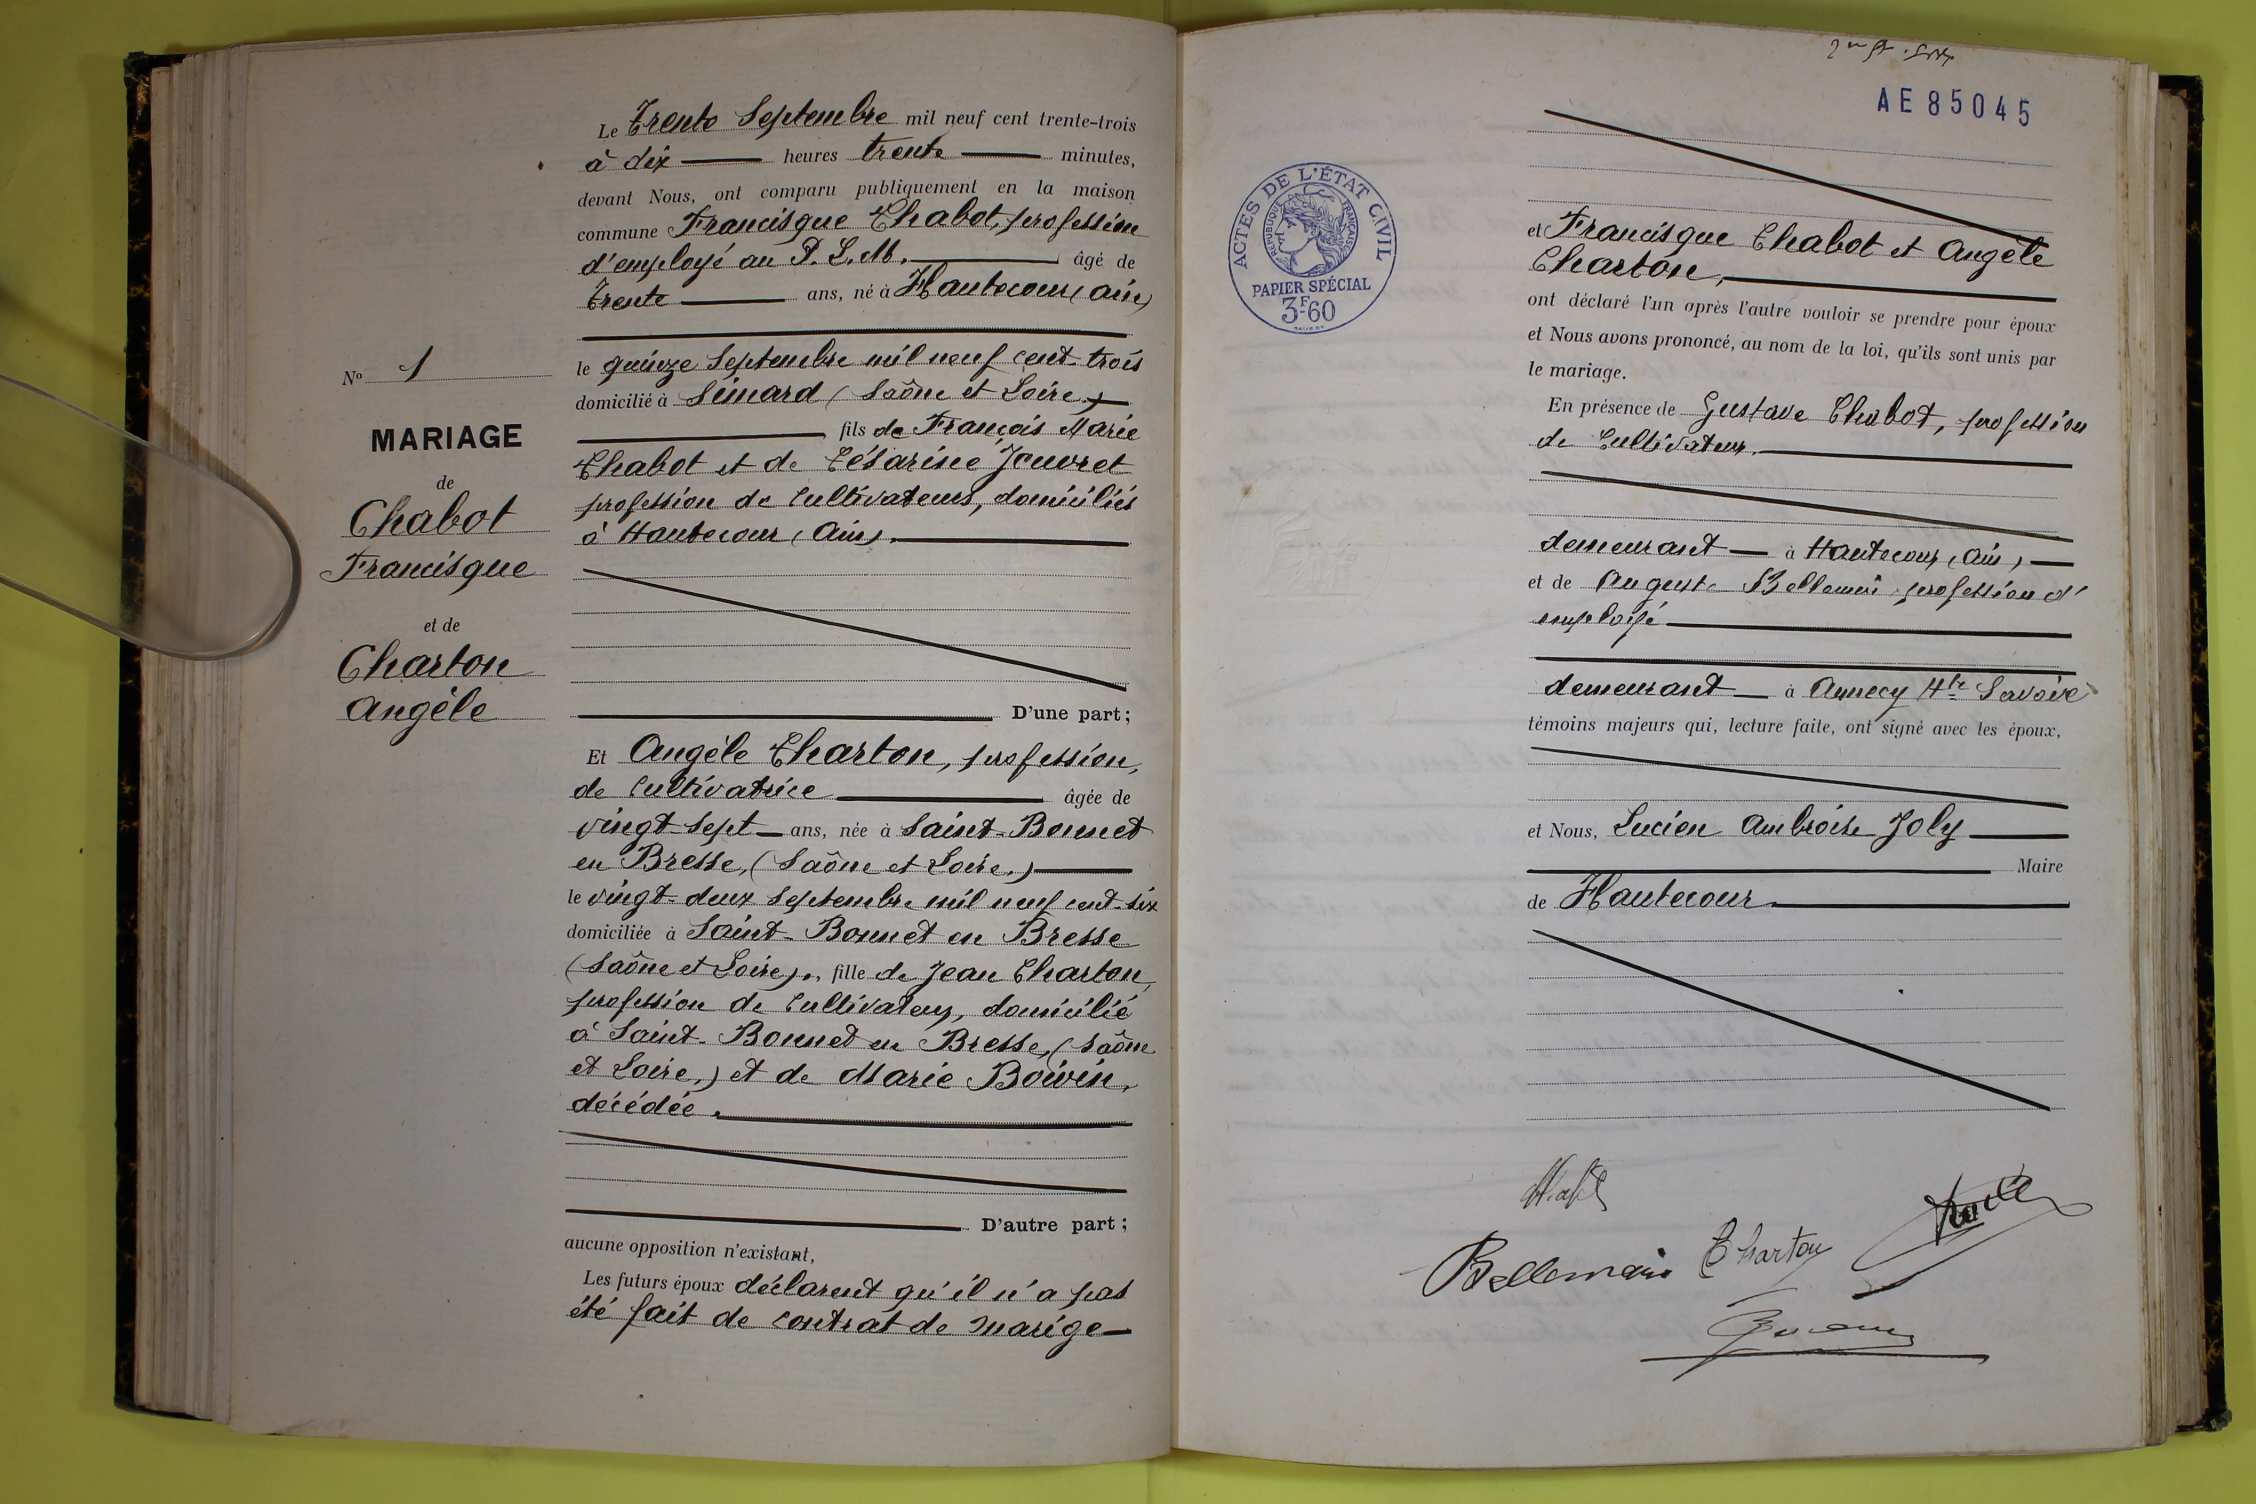 Le Trente Septembre mil neuf cent trente-trois
à dix heures trente minutes,
devant Nous, ont comparu publiquement en la maison
commune Francisque Chabot, profession
d'employé au P. L. M. âgé de
trente ans, né à Hautecour (Ain)
le quinze Septembre mil neuf cent trois
domicilié à Simard (Saône et Loire)
fils de François Marie
Chabot et de Césarine Jouvret
profession de Cultivateurs, domiciliés
à Hautecour (Ain).
D'une part;
Et Angèle Charton, profession,
de Cultivatrice âgée de
vingt-sept ans, née à Saint-Bonnet
en Bresse, (Saône et Loire.)
le vingt-deux Septembre mil neuf cent-six
domiciliée à Saint-Bonnet en Bresse
(Saône et Loire). fille de Jean Charton,
profession de Cultivateur, domicilié
à Saint-Bonnet en Bresse, (Saône
et Loire,) et de Marie Boivin,
décédée.
D'autre part;
aucune opposition n'existant,
Les futurs époux déclarent qu'il n'a pas
été fait de contrat de marige
No 1
MARIAGE
de
Chabot
Francisque
et de
Charton
Angèle
AE85045
ACTES DE L'ÉTAT CIVIL
RÉPUBLIQUE FRANÇAISE
PAPIER SPÉCIAL
3F60
et Francisque Chabot et Angèle
Charton,
ont déclaré l'un après l'autre vouloir se prendre pour époux
et Nous avons prononcé, au nom de la loi, qu'ils sont unis par
le mariage.
En présence de Gustave Chabot, profession
de Cultivateur.
demeurant à Hautecour (Ain)
et de Auguste Bellemin profession d'
employé
demeurant à Annecy Hte Savoie
témoins majeurs qui, lecture faite, ont signé avec les époux,
et Nous, Lucien Ambroise Joly
Maire
de Hautecour.
Charton